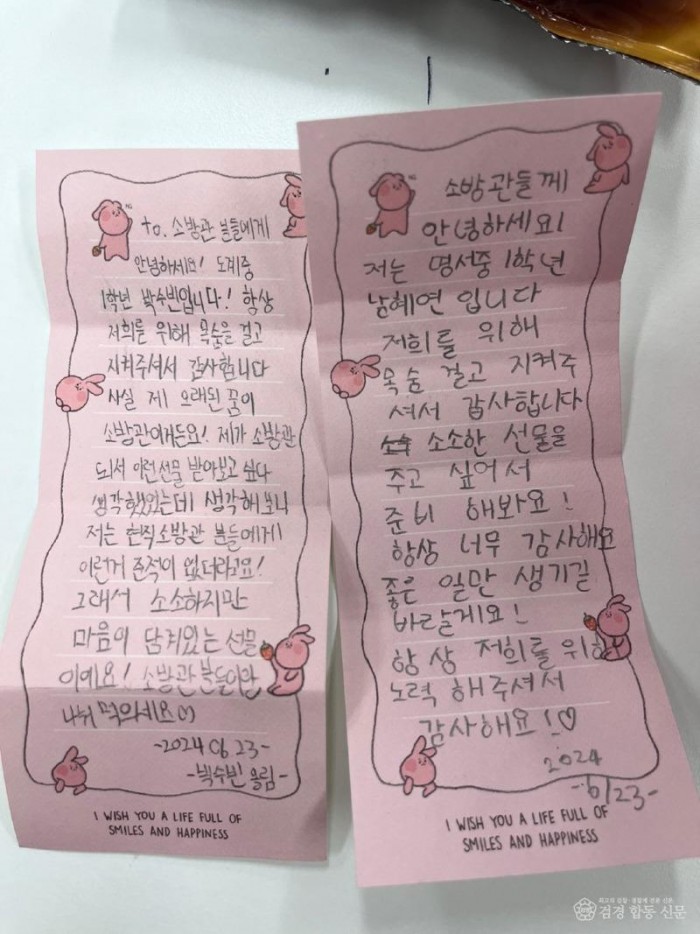 to. 소방관 분들에게
안녕하세요! 도계중
1학년 박수빈입니다! 항상
저희를 위해 목숨을 걸고
지켜주셔서 감사합니다
사실 제 오래된 꿈이
소방관이거든요! 제가 소방관
되서 이런선물 받아보고 싶다
생각했었는데 생각해보니
저는 현직소방관 분들에게
이런거 준적이 없더라고요!
그래서 소소하지만
마음이 담겨있는 선물
이예요! 소방관분들이랑
나눠 먹으세요
-2024 06 23-
-박수빈 올림-
I WISH YOU A LIFE FULL OF
SMILES AND HAPPINESS
소방관들께
안녕하세요!
저는 명서중 1학년
남혜연 입니다
저희를 위해
목숨 걸고 지켜주
셔서 감사합니다
소소한 선물을
주고 싶어서
준비 해봐요!
항상 너무 감사해요
좋은 일만 생기길
바랄게요!
항상 저희를 위해
노력 해주셔서
감사해요!♡
2024
-6/23-
I WISH YOU A LIFE FULL OF
SMILES AND HAPPINESS
검경 합동 신문